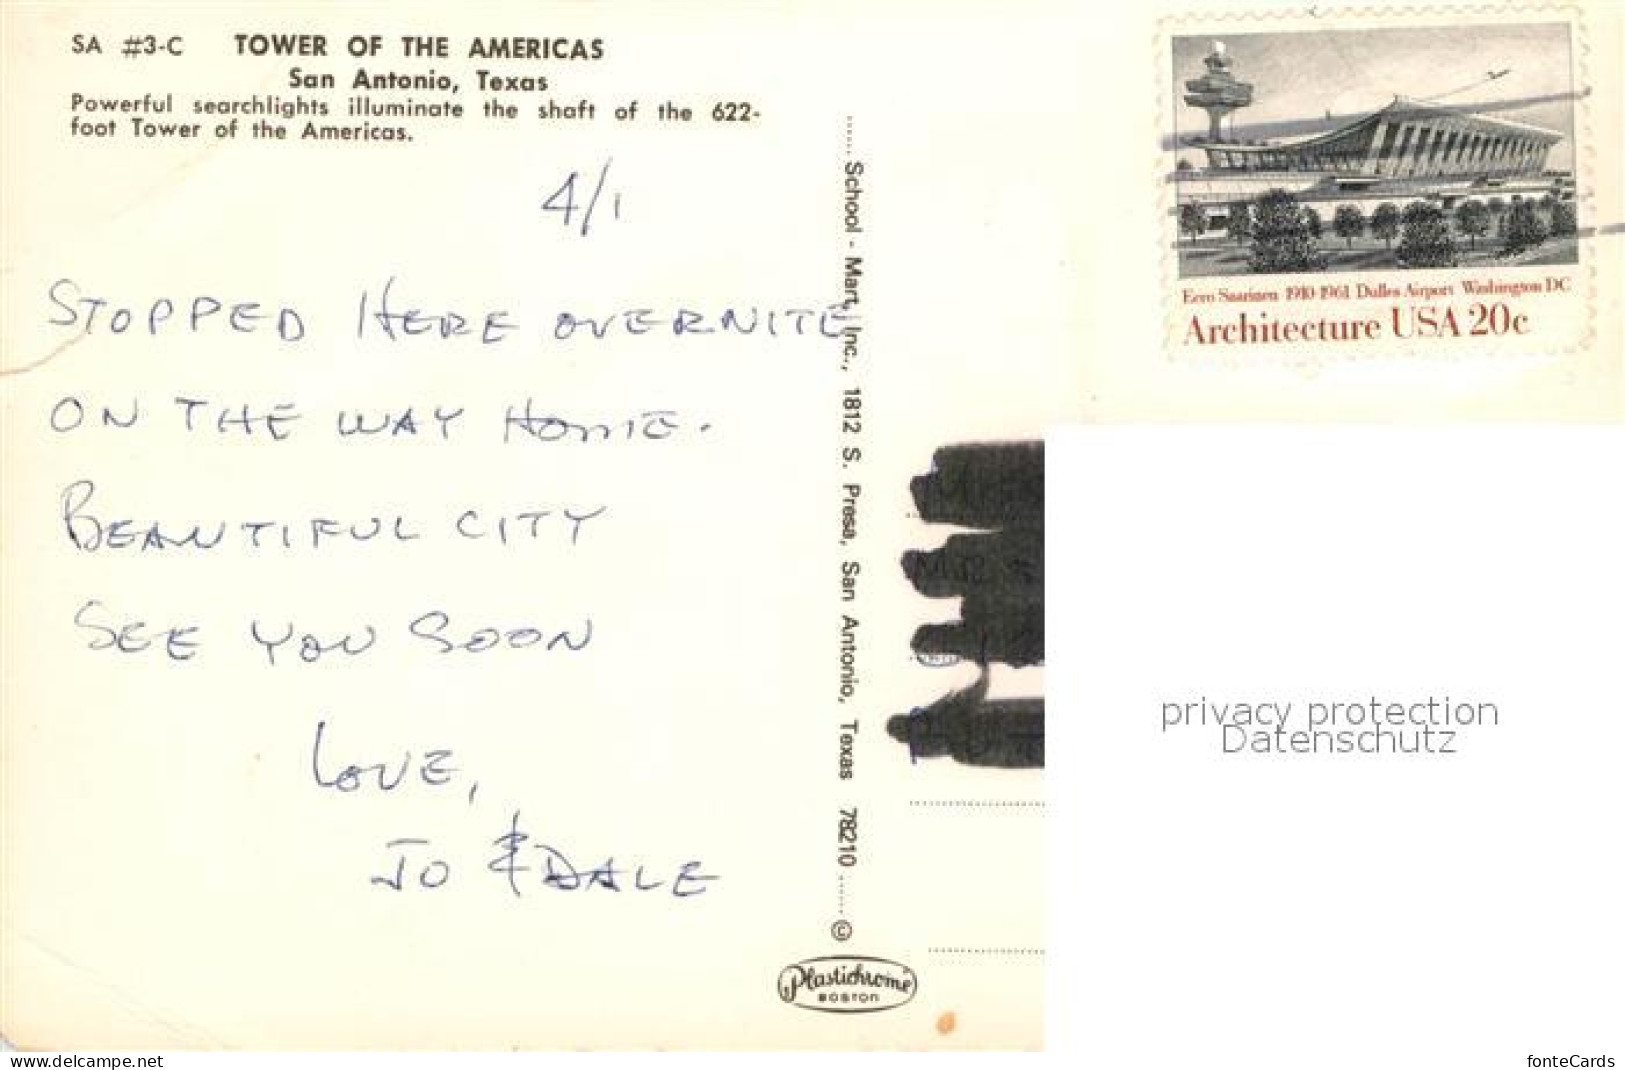 SA #3-C TOWER OF THE AMERICAS
San Antonio, Texas
Powerful searchlights illuminate the shaft of the 622-
foot Tower of the Americas.
4/1
STOPPED HERE OVERNITE
ON THE WAY HOME.
BEAUTIFUL CITY
SEE YOU SOON
LOVE,
JO & DALE
School - Mart, Inc., 1812 S. Presa, San Antonio, Texas 78210 ©
Plastichrome
BOSTON
Eero Saarinen 1910-1961 Dulles Airport Washington DC
Architecture USA 20c
privacy protection
Datenschutz
www.delcampe.net
fonteCards